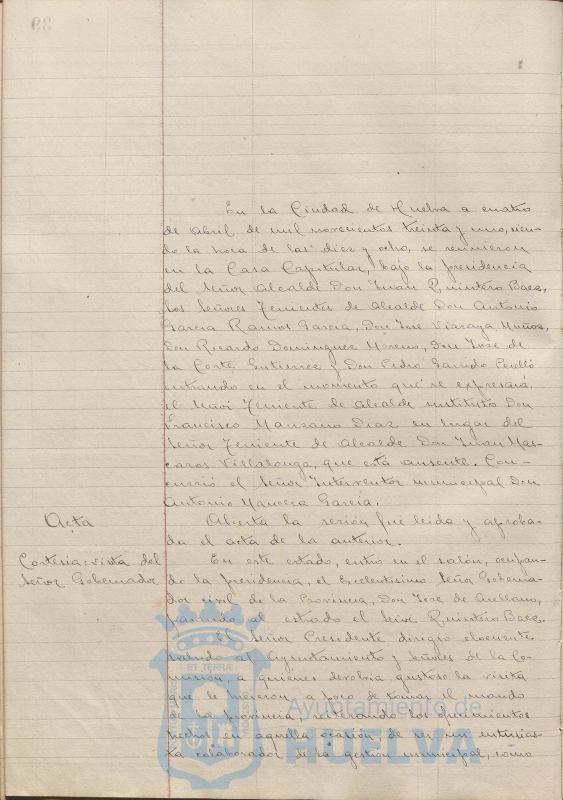 En la Ciudad de Huelva a cuatro
de abril de mil novecientos treinta y uno, sien-
do la hora de las diez y ocho, se reunieron
en la Casa Capitular, bajo la presidencia
del Señor Alcalde Don Juan Quintero Baez,
los Señores Tenientes de Alcalde Don Antonio
Garcia Ramos Garcia, Don José Vizcaya Muñoz,
Don Ricardo Dominguez Moreno, Don José de
la Corte Gutierrez y Don Pedro Garrido Perelló
entrando en el momento que se expresará,
el Señor Teniente de Alcalde sustituto Don
Francisco Manzano Diaz en lugar del
Señor Teniente de Alcalde Don Juan Mas-
caros Villalonga, que está ausente. Con-
currió el Señor Interventor municipal Don
Antonio Mancera García.
Acta
Abierta la sesión fue leida y aproba-
da el acta de la anterior.
Cortesia: visita del
Señor Gobernador
En este estado, entro en el salón, ocupan-
do la presidencia, el Excelentisimo Señor Goberna-
dor civil de la Provincia, Don José de Arellano,
pasando al estrado el Señor Quintero Baez.
El Señor Presidente dirigio elocuente
saludo al Ayuntamiento y señores de la Co-
mision, a quienes devolvia gustoso la visita
que le hicieron, a poco de tomar el mando
de la provincia, reiterando los ofrecimientos
hechos en aquella ocasión de ser un entusias-
ta colaborador de la gestion municipal, como
ET TERRA
Ayuntamiento de
HUELVA